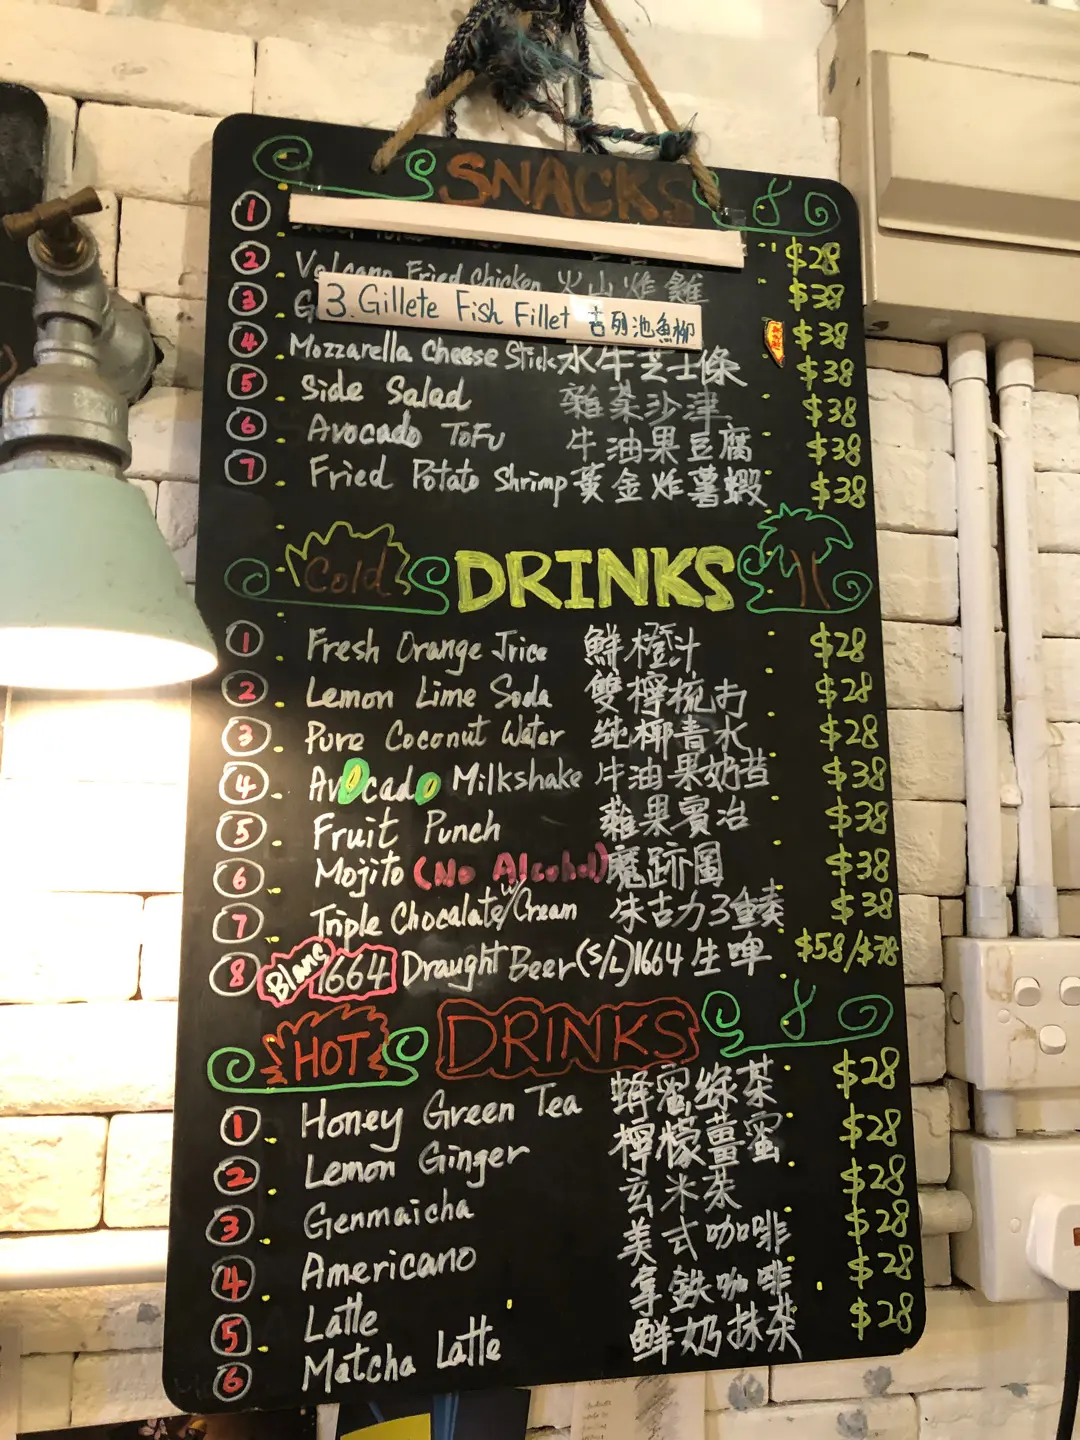 SNACKS
1 $28
2 Volcano Fried Chicken 火山炸雞 $38
3 G
3. Gillete Fish Fillet 吉列池魚柳 $38
4 Mozzarella Cheese Stick 水牛芝士條 $38
5 Side Salad 雜菜沙津 $38
6 Avocado ToFu 牛油果豆腐 $38
7 Fried Potato Shrimp 黃金炸薯蝦 $38
Cold DRINKS
1 Fresh Orange Jrice 鮮橙汁 $28
2 Lemon Lime Soda 雙檸梳打 $28
3 Pure Coconut Water 純椰青水 $28
4 Avocado Milkshake 牛油果奶昔 $38
5 Fruit Punch 雜果賓治 $38
6 Mojito (No Alcohol) 魔跡圖 $38
7 Triple Chocalate w/ Cream 朱古力3重奏 $38
8 Blanc 1664 Draught Beer (S/L) 1664 生啤 $58/$78
HOT DRINKS
1 Honey Green Tea 蜂蜜綠茶 $28
2 Lemon Ginger 檸檬薑蜜 $28
3 Genmaicha 玄米茶 $28
4 Americano 美式咖啡 $28
5 Latte 拿鐵咖啡 $28
6 Matcha Latte 鮮奶抹茶 $28